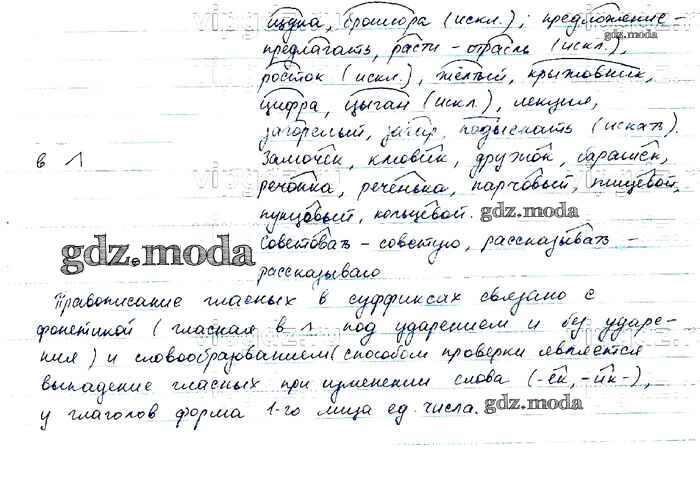 щупка, брошюра (искл.); предложение -
предлагать, расти - отрасль (искл.),
росток (искл.), жёлтый, крыжовник,
цифра, цыган (искл.), лекция,
загорелый, загар, подыскать (искать).
в ^ Замочек, ключик, дружок, барашек,
речонка, реченька, парчовый, пищевой,
пунцовый, кольцевой. gdz.moda
gdz.moda Советовать - советую, рассказывать -
рассказываю
Правописание гласных в суффиксах связано с
фонетикой (гласная в ^ под ударением и без ударе-
ния) и словообразованием (способом проверки является
выпадение гласных при изменении слова (-ек, -ик-),
у глаголов форма 1-го лица ед. числа. gdz.moda
gdz.moda